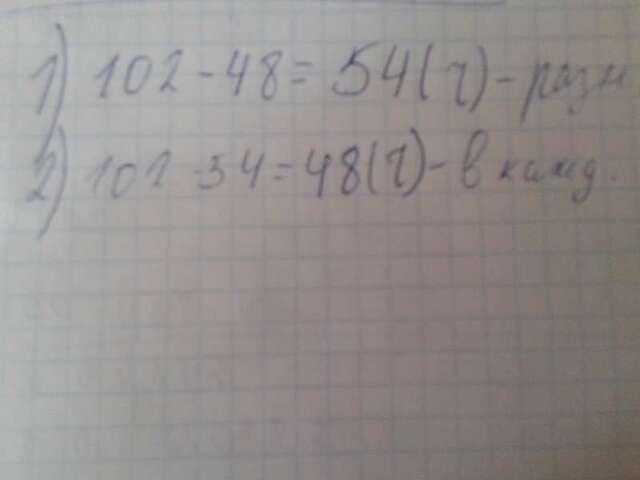 1) 102 - 48 = 54 (г) - разн
2) 102 - 54 = 48 (г) - в кажд.